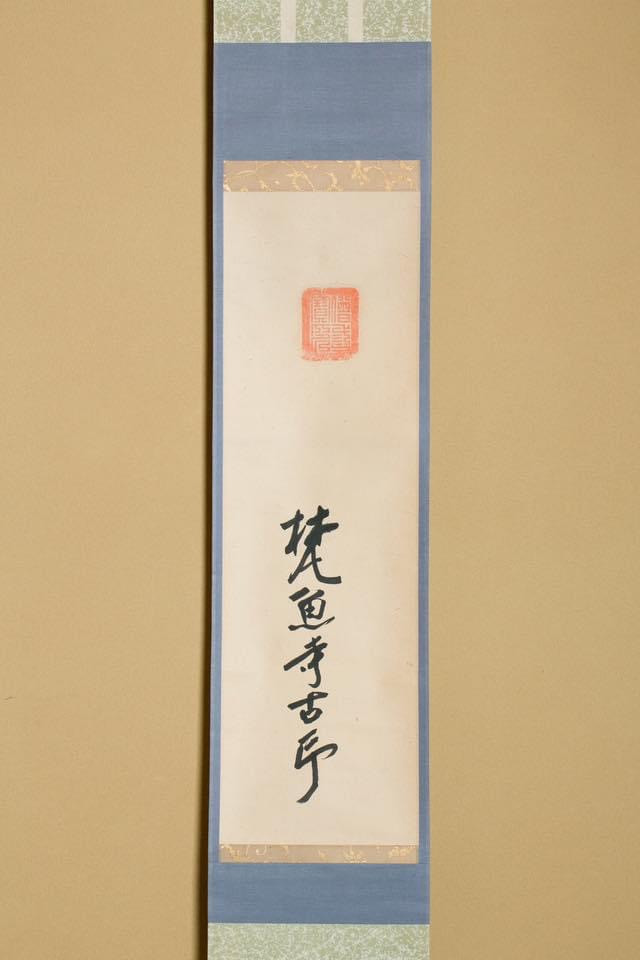 梵魚寺古印